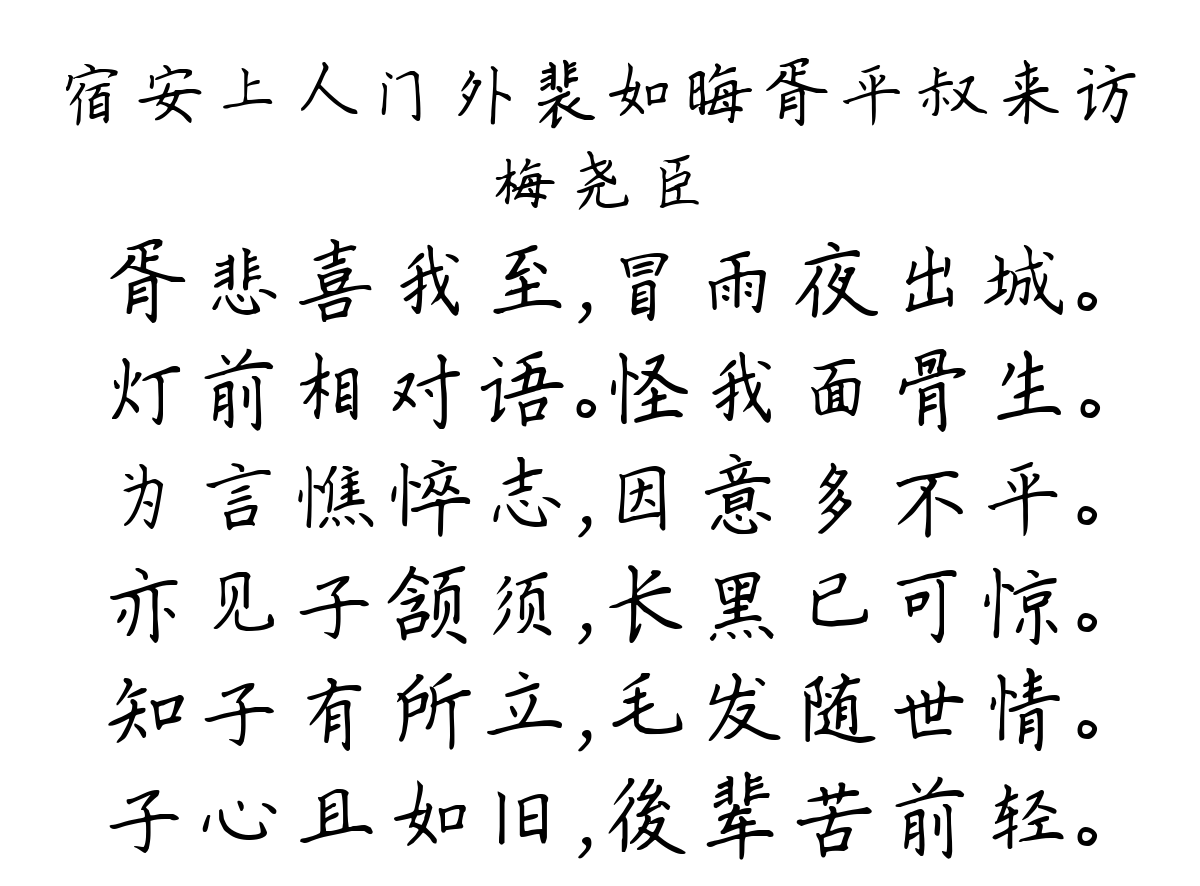 宿安上人门外裴如晦胥平叔来访
梅尧臣
胥悲喜我至,冒雨夜出城。
灯前相对语。怪我面骨生。
为言憔悴志,因意多不平。
亦见子颔须,长黑已可惊。
知子有所立,毛发随世情。
子心且如旧,後辈苦前轻。